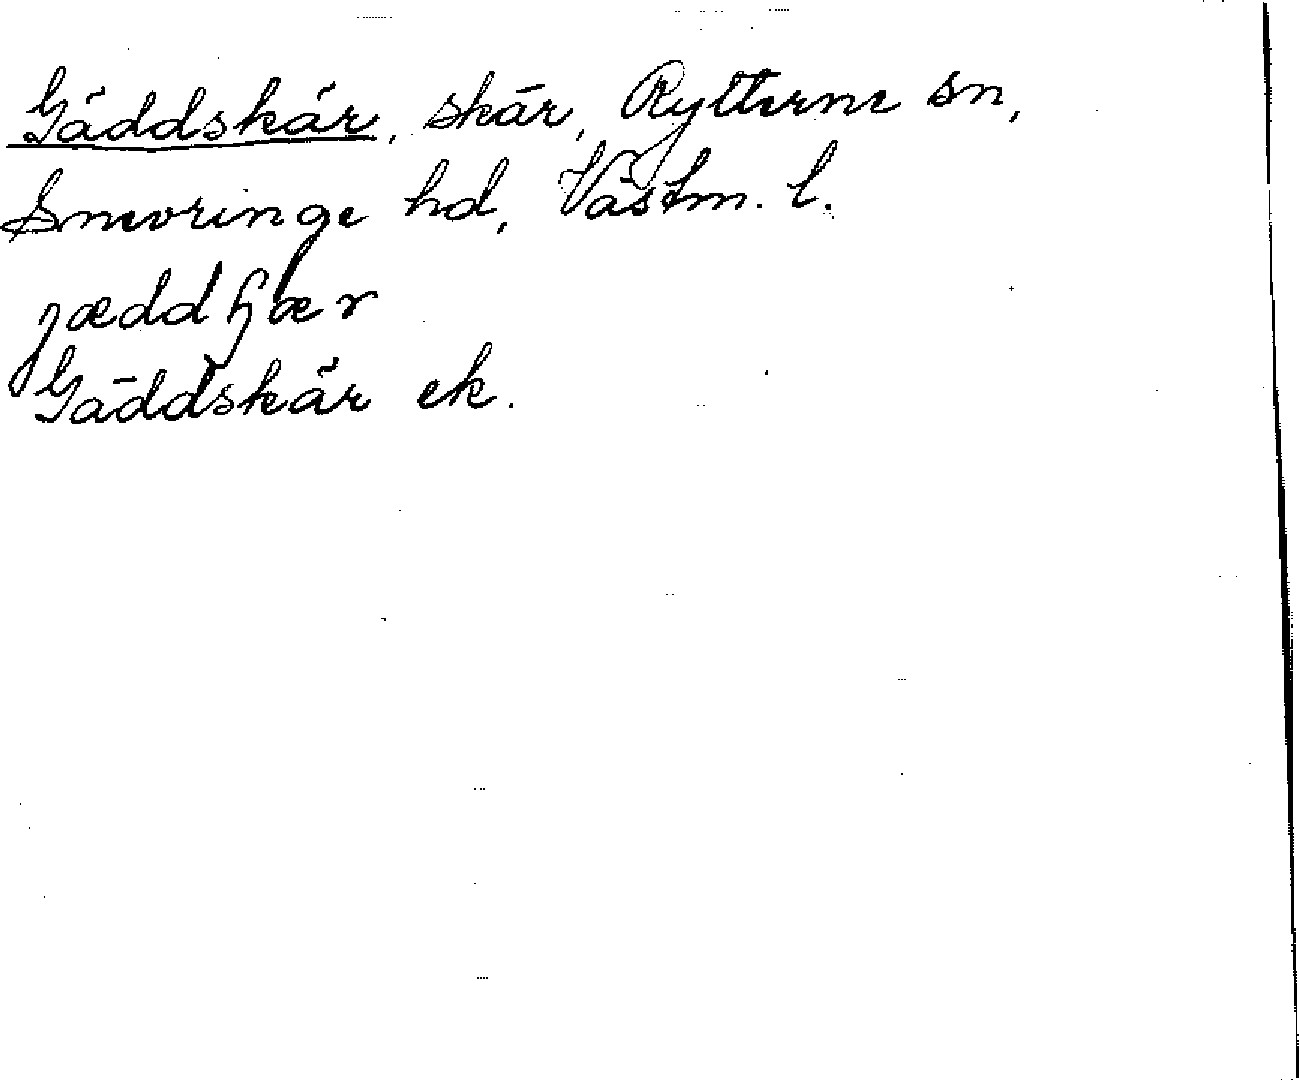 Gäddskär, skär, Rytterne sn,
Snevringe hd, Västm. l.
jæddɧær
Gäddskär ek.